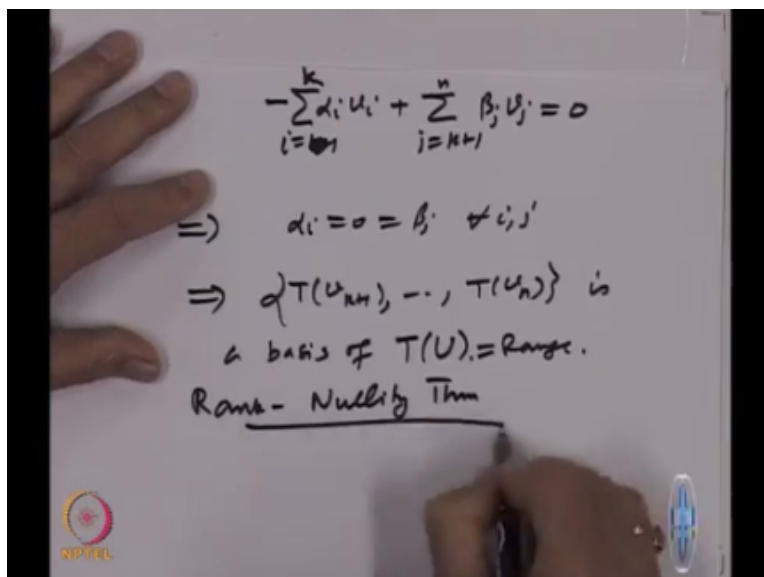 -∑_{i=1}^{k} α_i v_i + ∑_{j=k+1}^{n} β_j v_j = 0
⇒ α_i = 0 = β_j ∀ i, j
⇒ {T(v_{k+1}), ..., T(v_n)} is
a basis of T(U). = Range.
Rank - Nullity Thm
NPTEL